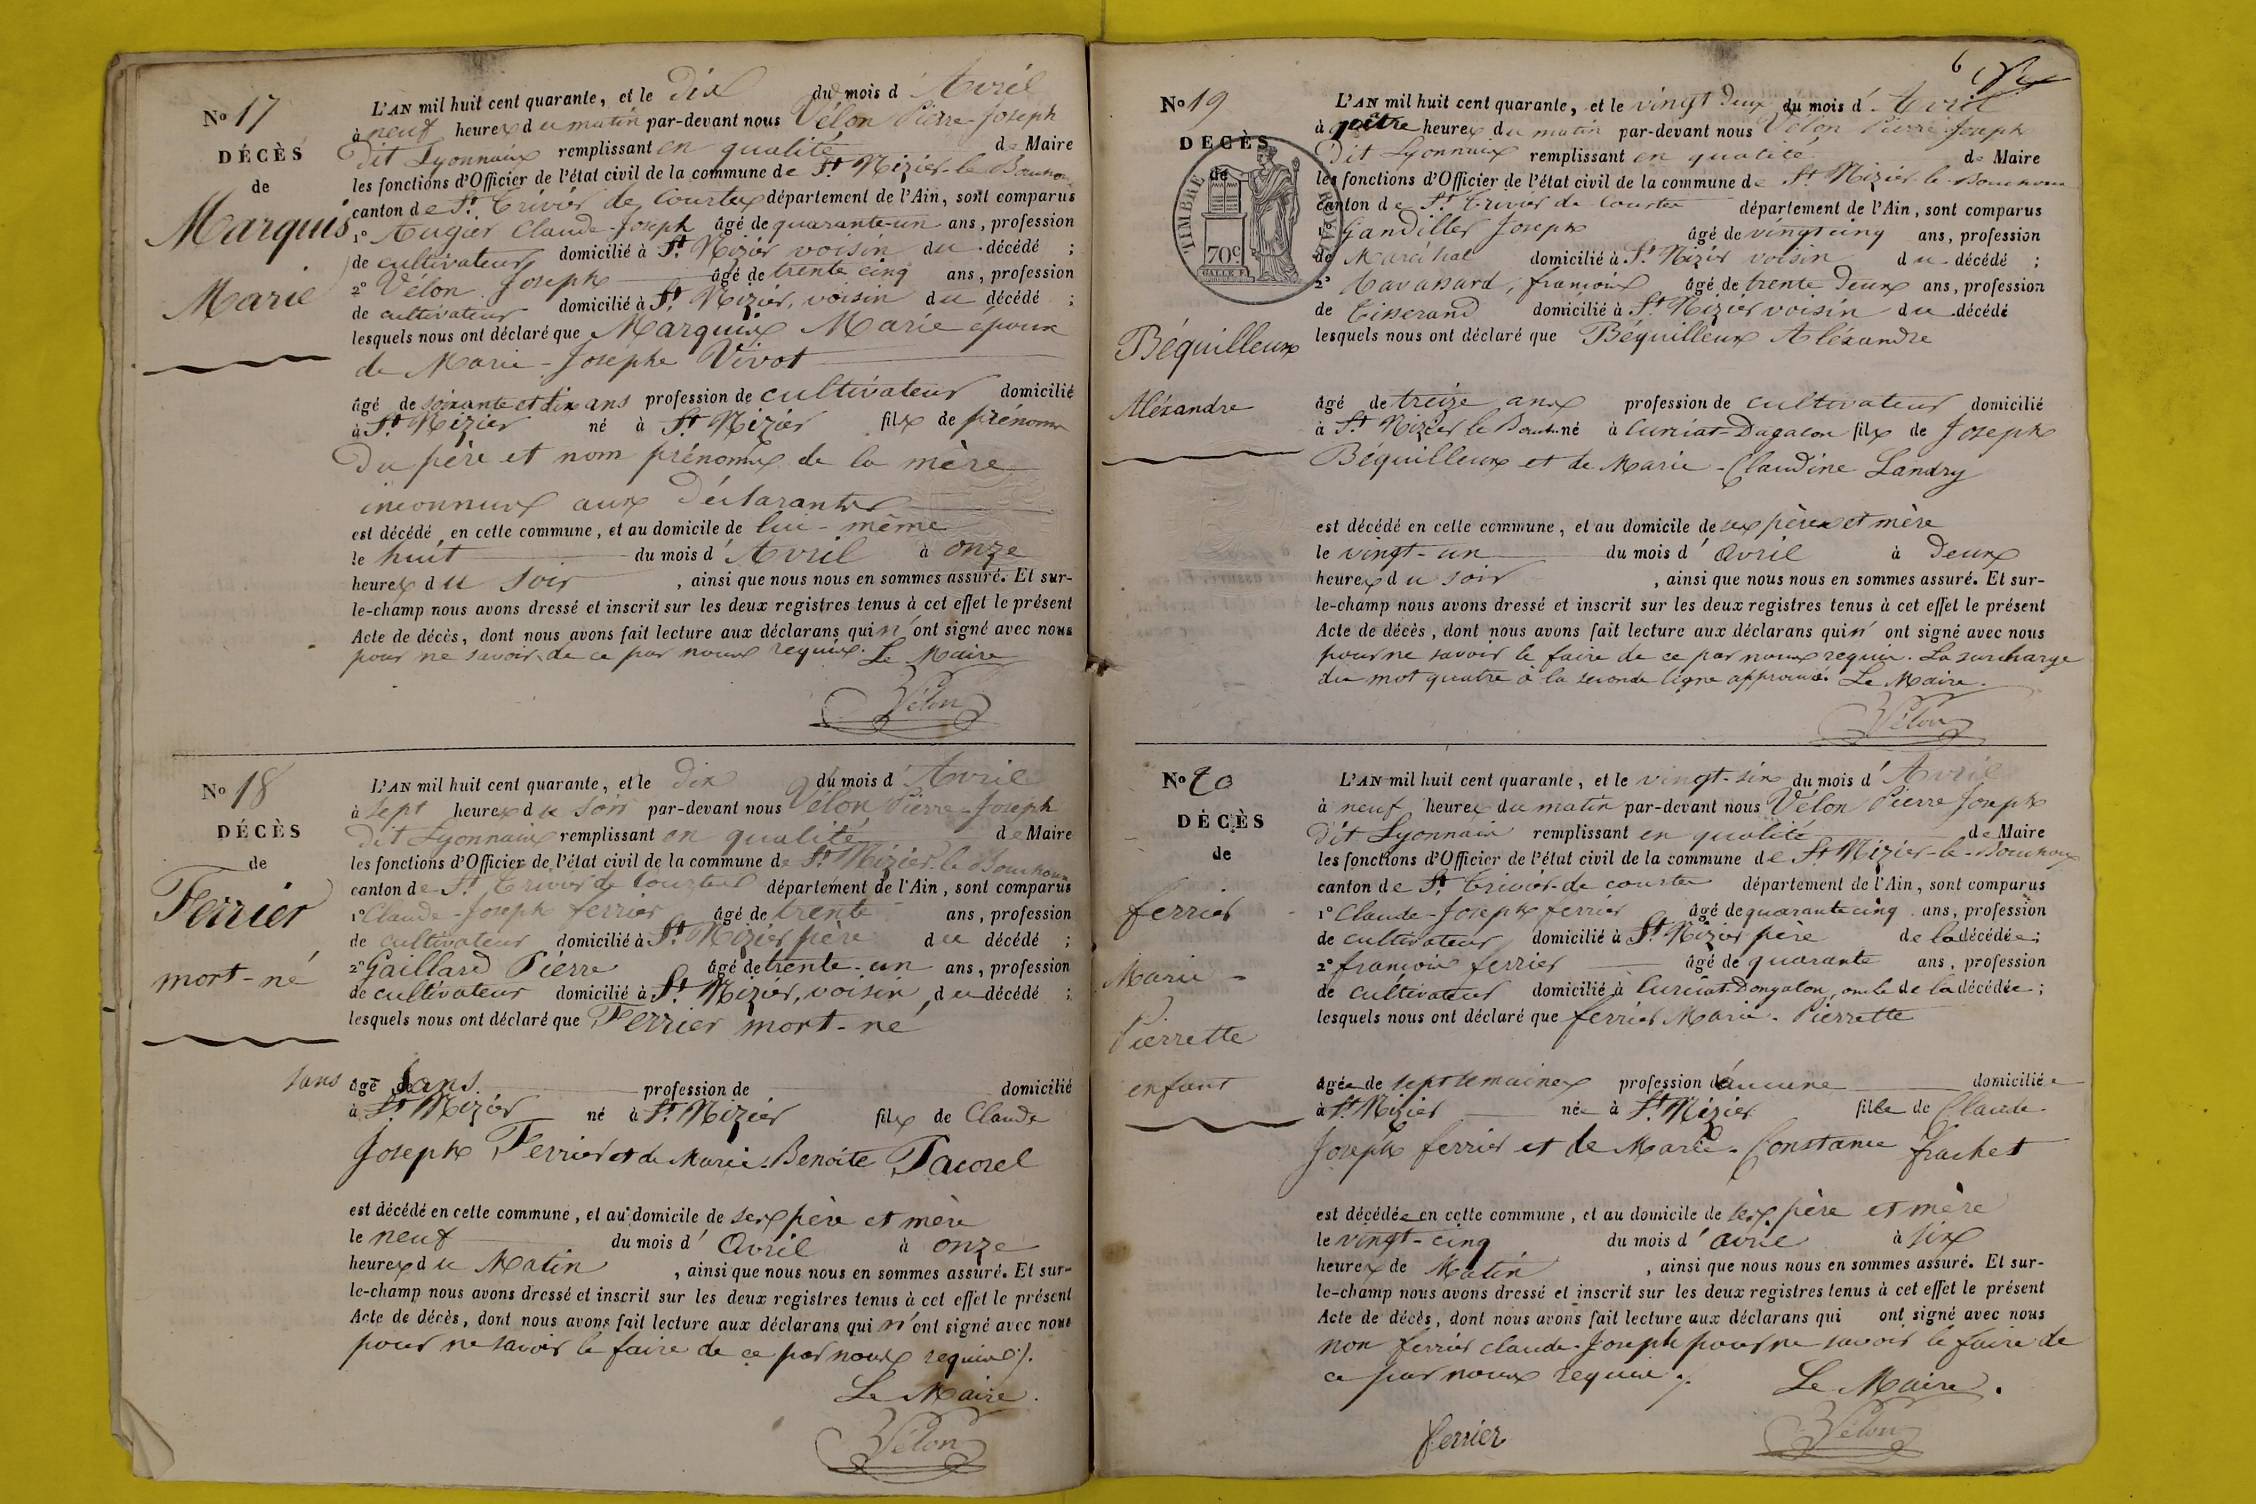 No 17
DÉCÈS
de
Marquis
Marie
L'AN mil huit cent quarante, et le dix du mois d'Avril
à neuf heures du matin par-devant nous Vélon Pierre-Joseph
dit Lyonnaix remplissant en qualité de Maire
les fonctions d'Officier de l'état civil de la commune de St Nizier-le Bouchoux
canton de St Trivier de Courtes département de l'Ain, sont comparus
1° Augier Claude-Joseph âgé de quarante-un ans, profession
de cultivateur domicilié à St Nizier voisin du décédé ;
2° Vélon Joseph âgé de trente cinq ans, profession
de cultivateur domicilié à St Nizier, voisin du décédé ;
lesquels nous ont déclaré que Marquis Marie époux
de Marie-Josephe Vivot
âgé de soixante et dix ans profession de cultivateur domicilié
à St Nizier né à St Nizier fils de prénoms
du père et nom prénoms de la mère
inconnus aux déclarants
est décédé en cette commune, et au domicile de lui-même
le huit du mois d'Avril à onze
heures du soir, ainsi que nous nous en sommes assuré. Et sur-
le-champ nous avons dressé et inscrit sur les deux registres tenus à cet effet le présent
Acte de décès, dont nous avons fait lecture aux déclarans qui n'ont signé avec nous
pour ne savoir de ce par nous requis. Le Maire
Vélon
No 18
DÉCÈS
de
Ferrier
mort-né
L'AN mil huit cent quarante, et le dix du mois d'Avril
à sept heures du soir par-devant nous Vélon Pierre-Joseph
dit Lyonnaix remplissant en qualité de Maire
les fonctions d'Officier de l'état civil de la commune de St Nizier-le Bouchoux
canton de St Trivier de Courtes département de l'Ain, sont comparus
1° Claude-Joseph ferrier âgé de trente ans, profession
de cultivateur domicilié à St Nizier père du décédé ;
2° Gaillard Pierre âgé de trente-un ans, profession
de cultivateur domicilié à St Nizier, voisin du décédé ;
lesquels nous ont déclaré que Ferrier mort-né
sans âgé sans profession de domicilié
à St Nizier né à St Nizier fils de Claude
Joseph Ferrier et de Marie-Benoite Pacorel
est décédé en cette commune, et au domicile de ses père et mère
le neuf du mois d'Avril à onze
heures du Matin, ainsi que nous nous en sommes assuré. Et sur-
le-champ nous avons dressé et inscrit sur les deux registres tenus à cet effet le présent
Acte de décès, dont nous avons fait lecture aux déclarans qui n'ont signé avec nous
pour ne savoir le faire de ce par nous requis ./.
Le Maire.
Vélon
6
No 19
DÉCÈS
de
TIMBRE ROYAL
70c
Béquilleux
Aléxandre
L'AN mil huit cent quarante, et le vingt deux du mois d'Avril
à quatre heures du matin par-devant nous Vélon Pierre Joseph
dit Lyonnaix remplissant en qualité de Maire
les fonctions d'Officier de l'état civil de la commune de St Nizier-le-Bouchoux
canton de St Trivier de Courtes département de l'Ain, sont comparus
1° Gandiller Joseph âgé de vingt cinq ans, profession
de Maréchal domicilié à St Nizier voisin du décédé ;
2° Navassard, francois âgé de trente deux ans, profession
de tisserand domicilié à St Nizier voisin du décédé
lesquels nous ont déclaré que Béquilleux Aléxandre
âgé de treize ans profession de cultivateur domicilié
à St Nizier le Bouch. né à Curciat-Dagalon fils de Joseph
Béquilleux et de Marie-Claudine Landry
est décédé en cette commune, et au domicile de ses pères et mère
le vingt-un du mois d'avril à deux
heures du soir, ainsi que nous nous en sommes assuré. Et sur-
le-champ nous avons dressé et inscrit sur les deux registres tenus à cet effet le présent
Acte de décès, dont nous avons fait lecture aux déclarans qui n'ont signé avec nous
pour ne savoir le faire de ce par nous requis. La surcharge
du mot quatre à la seconde ligne approuvé. Le Maire.
Vélon
No 20
DÉCÈS
de
ferrier
Marie-
Pierrette
enfant
L'AN mil huit cent quarante, et le vingt-six du mois d'Avril
à neuf heures du matin par-devant nous Vélon Pierre Joseph
dit Lyonnais remplissant en qualité de Maire
les fonctions d'Officier de l'état civil de la commune de St Nizier-le-Bouchoux
canton de St Trivier-de courtes département de l'Ain, sont comparus
1° Claude-Joseph ferrier âgé de quarante cinq ans, profession
de cultivateur domicilié à St Nizier père de la décédée ;
2° francois ferrier âgé de quarante ans, profession
de cultivateur domicilié à Curciat-Dongalon, oncle de la décédée ;
lesquels nous ont déclaré que ferrier Marie-Pierrette
âgée de sept semaines profession d'aucune domiciliée
à St Nizier née à St Nizier fille de Claude
Joseph ferrier et de Marie-Constance frachet
est décédée en cette commune, et au domicile de ses père et mère
le vingt-cinq du mois d'avril à six
heures de Matin, ainsi que nous nous en sommes assuré. Et sur-
le-champ nous avons dressé et inscrit sur les deux registres tenus à cet effet le présent
Acte de décès, dont nous avons fait lecture aux déclarans qui ont signé avec nous
non ferrier claude-Joseph pour ne savoir le faire de
ce par nous requis ./. Le Maire.
ferrier Vélon